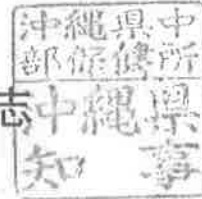 沖縄県中
部保健所
志
沖縄県
知事